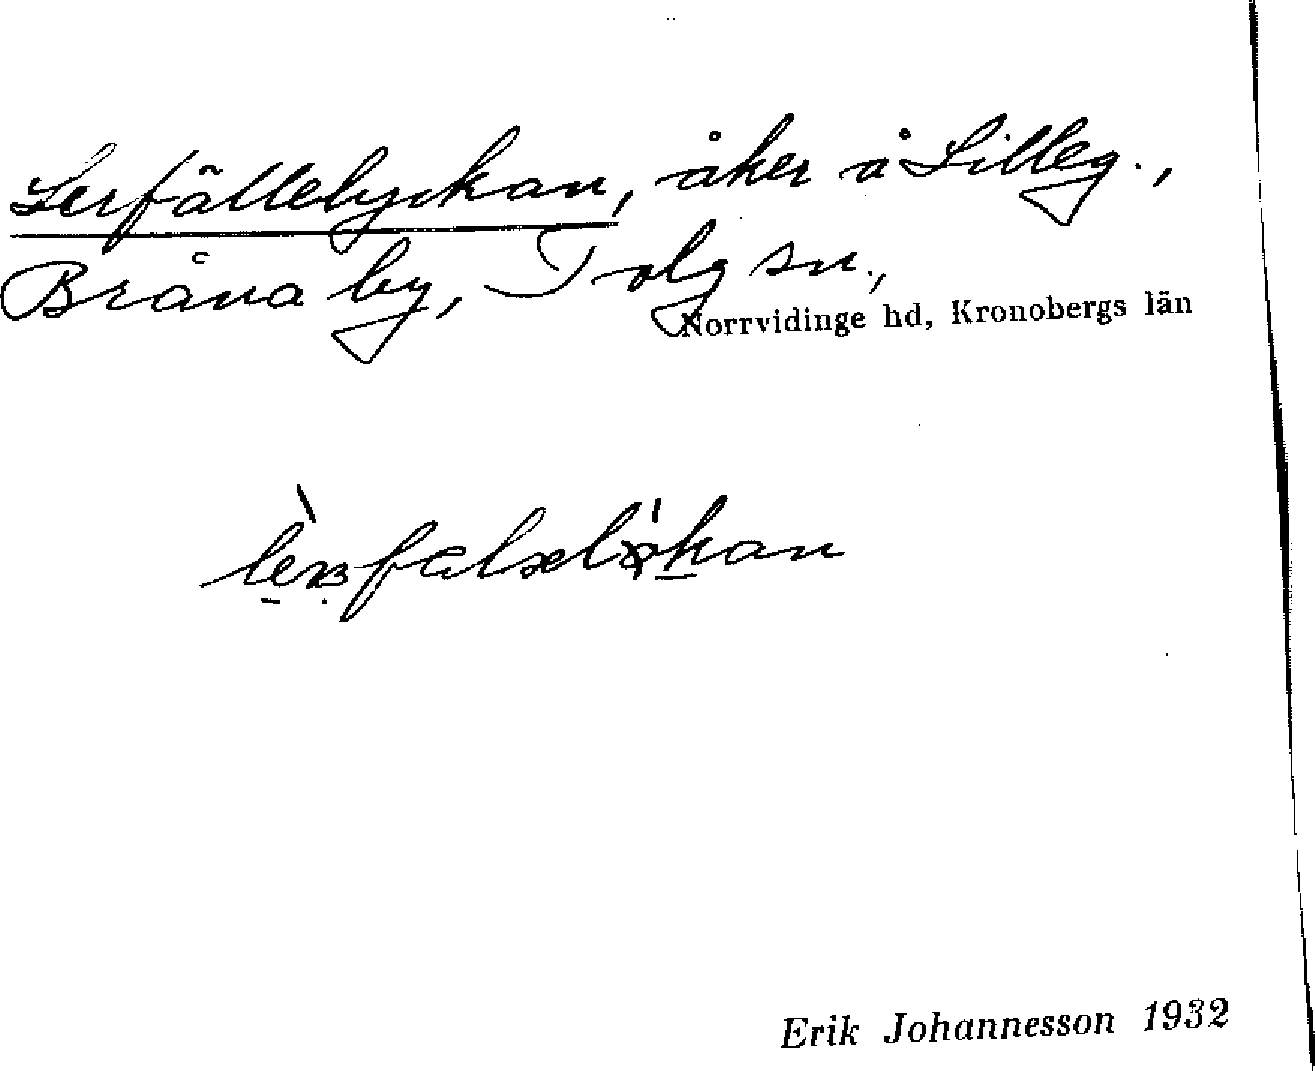 Lerfällelyckan, åker å Lilleg.,
Bråna by, Tolg sn.,
Norrvidinge hd, Kronobergs län
Erik Johannesson 1932